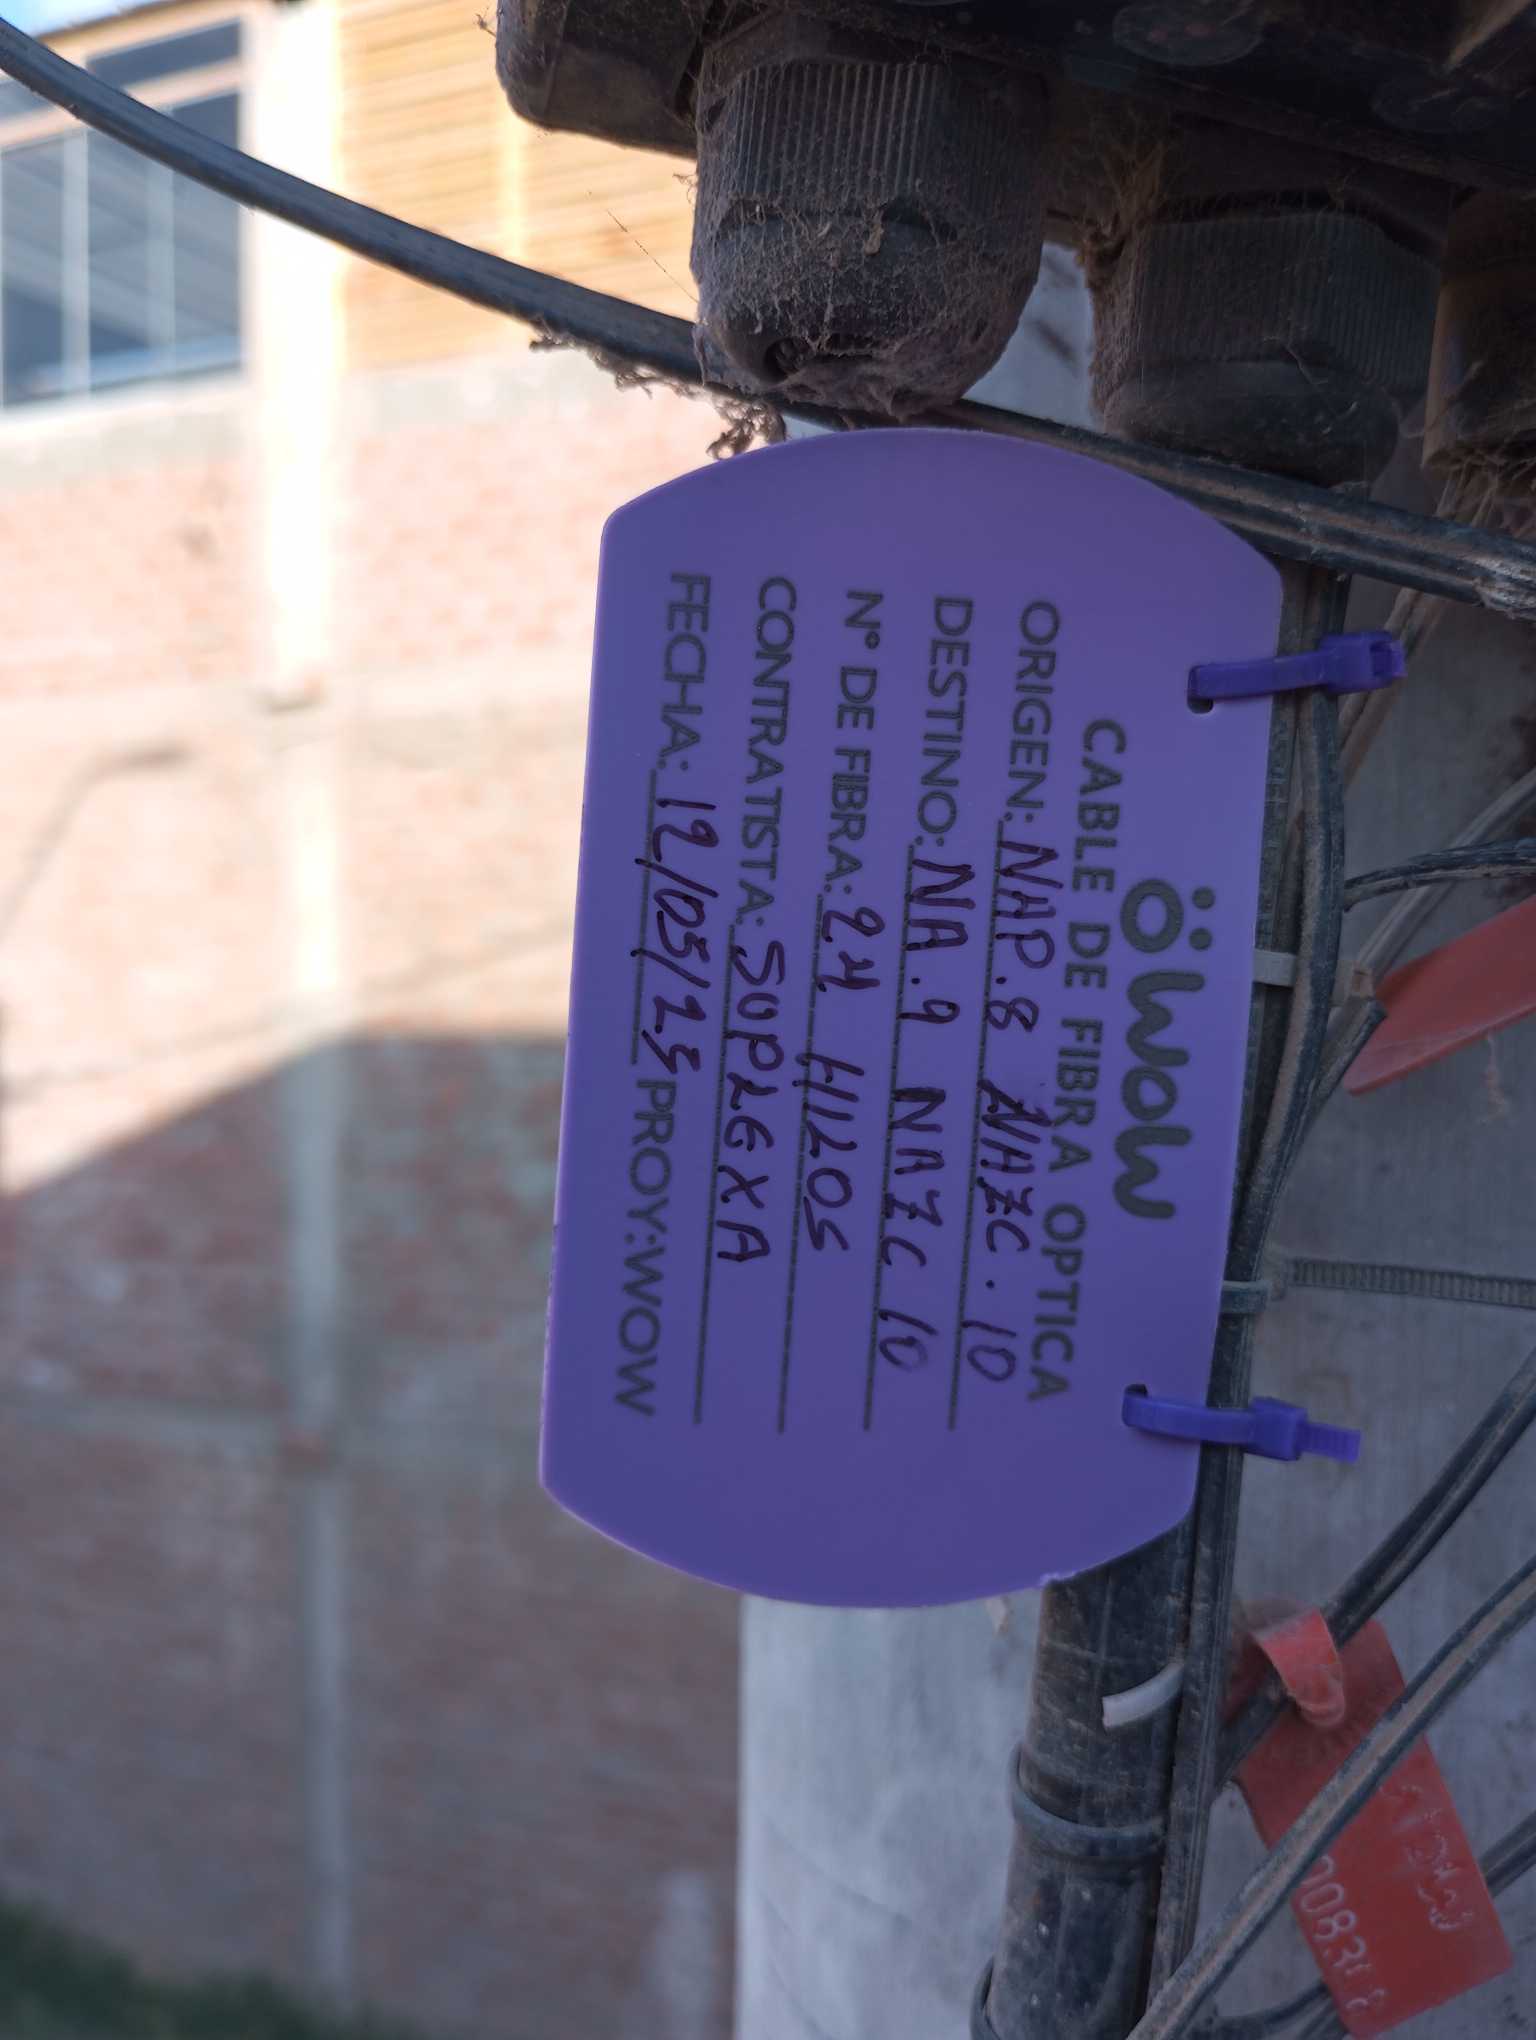 wow
CABLE DE FIBRA OPTICA
ORIGEN: NAP.8 NAZC.10
DESTINO: NA.9 NAZC 10
N° DE FIBRA: 24 HILOS
CONTRATISTA: SUPLEXA
FECHA: 12/05/25 PROY:WOW